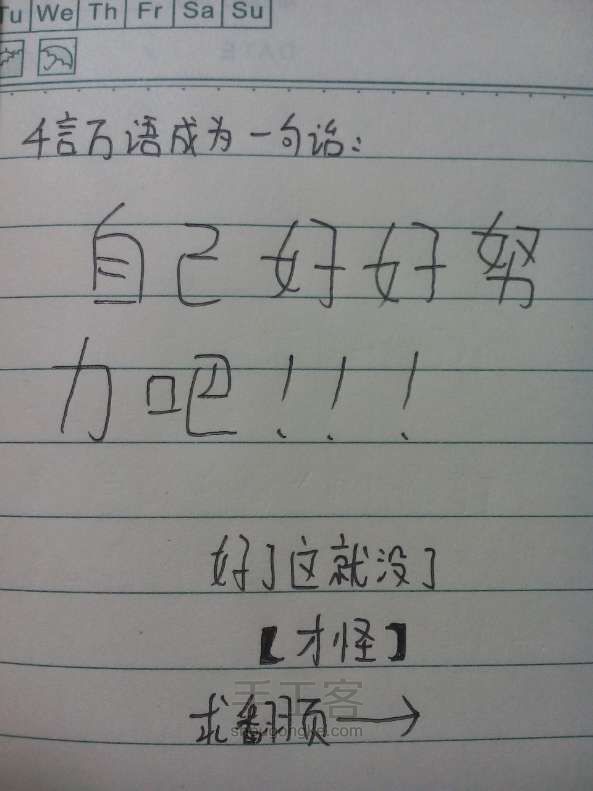 Tu We Th Fr Sa Su
DATE
千言万语成为一句话：
自己好好努
力吧！！！
好了这就没了
【才怪】
求翻页→
手工客
shougongke.com